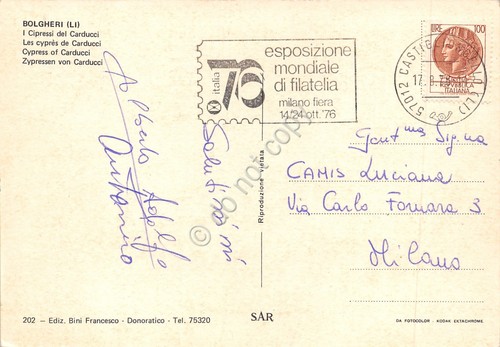 BOLGHERI (LI)
I Cipressi del Carducci
Les cyprés de Carducci
Cypress of Carducci
Zypressen von Carducci
italia
76
esposizione
mondiale
di filatelia
milano fiera
14/24 ott. '76
LIRE 100
REPVBBLICA
ITALIANA
57012 CASTIG
(LI)
Gent.ma Sig.na
CAMIS Luciana
Via Carlo Fornara 3
Milano
Saluti
Adolfo
Riproduzione vietata
do not copy
202 — Ediz. Bini Francesco - Donoratico - Tel. 75320
SAR
DA FOTOCOLOR - KODAK EKTACHROME